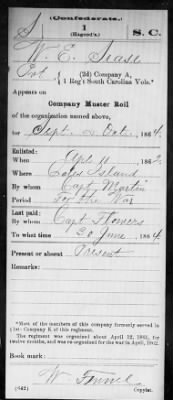 (Confederate.)
S 1 S. C.
(Hagood's.)
W. E. Sease
Pvt, (2d) Company A,
1 Reg't South Carolina Vols.*
Appears on
Company Muster Roll
of the organization named above,
for Sept. & Oct., 1864.
Enlisted:
When Apl. 11, 1862
Where Coles Island
By whom Capt. Martin
Period for the War
Last paid:
By whom Capt. Flowers
To what time 30 June, 1864.
Present or absent Present
Remarks:
*Most of the members of this company formerly served in
(1st) Company K of this regiment.
The regiment was organized about April 12, 1862, for
twelve months, and was re-organized for the war in April, 1862.
Book mark:
W.
(642) Copyist.